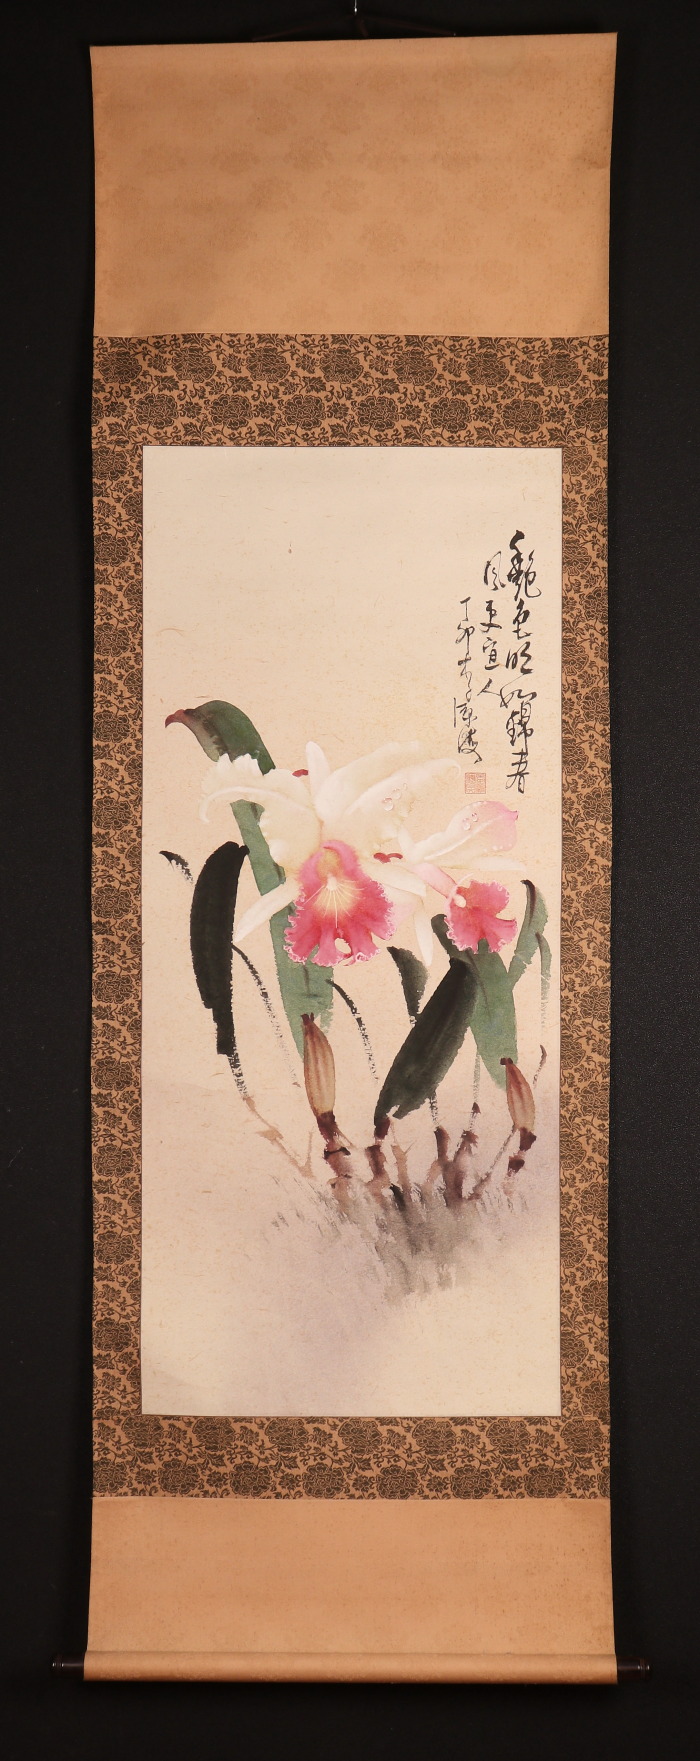 艷色明如錦春
風更宜人
丁卯